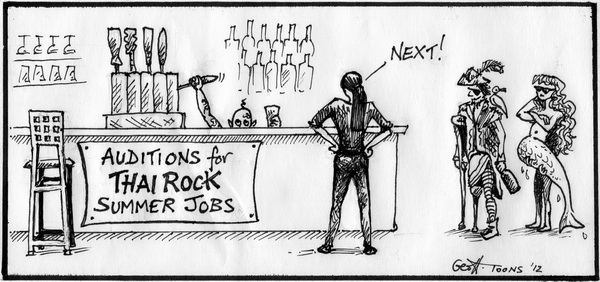 NEXT!
AUDITIONS for
THAI ROCK
SUMMER JOBS
Geoff. TOONS '12